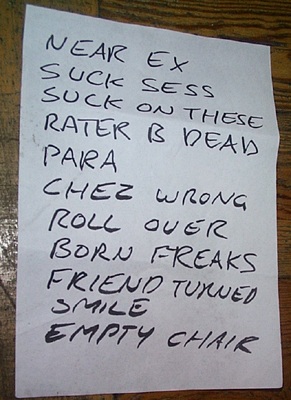 NEAR EX
SUCK SESS
SUCK ON THESE
RATER B DEAD
PARA
CHEZ WRONG
ROLL OVER
BORN FREAKS
FRIEND TURNED
SMILE
EMPTY CHAIR